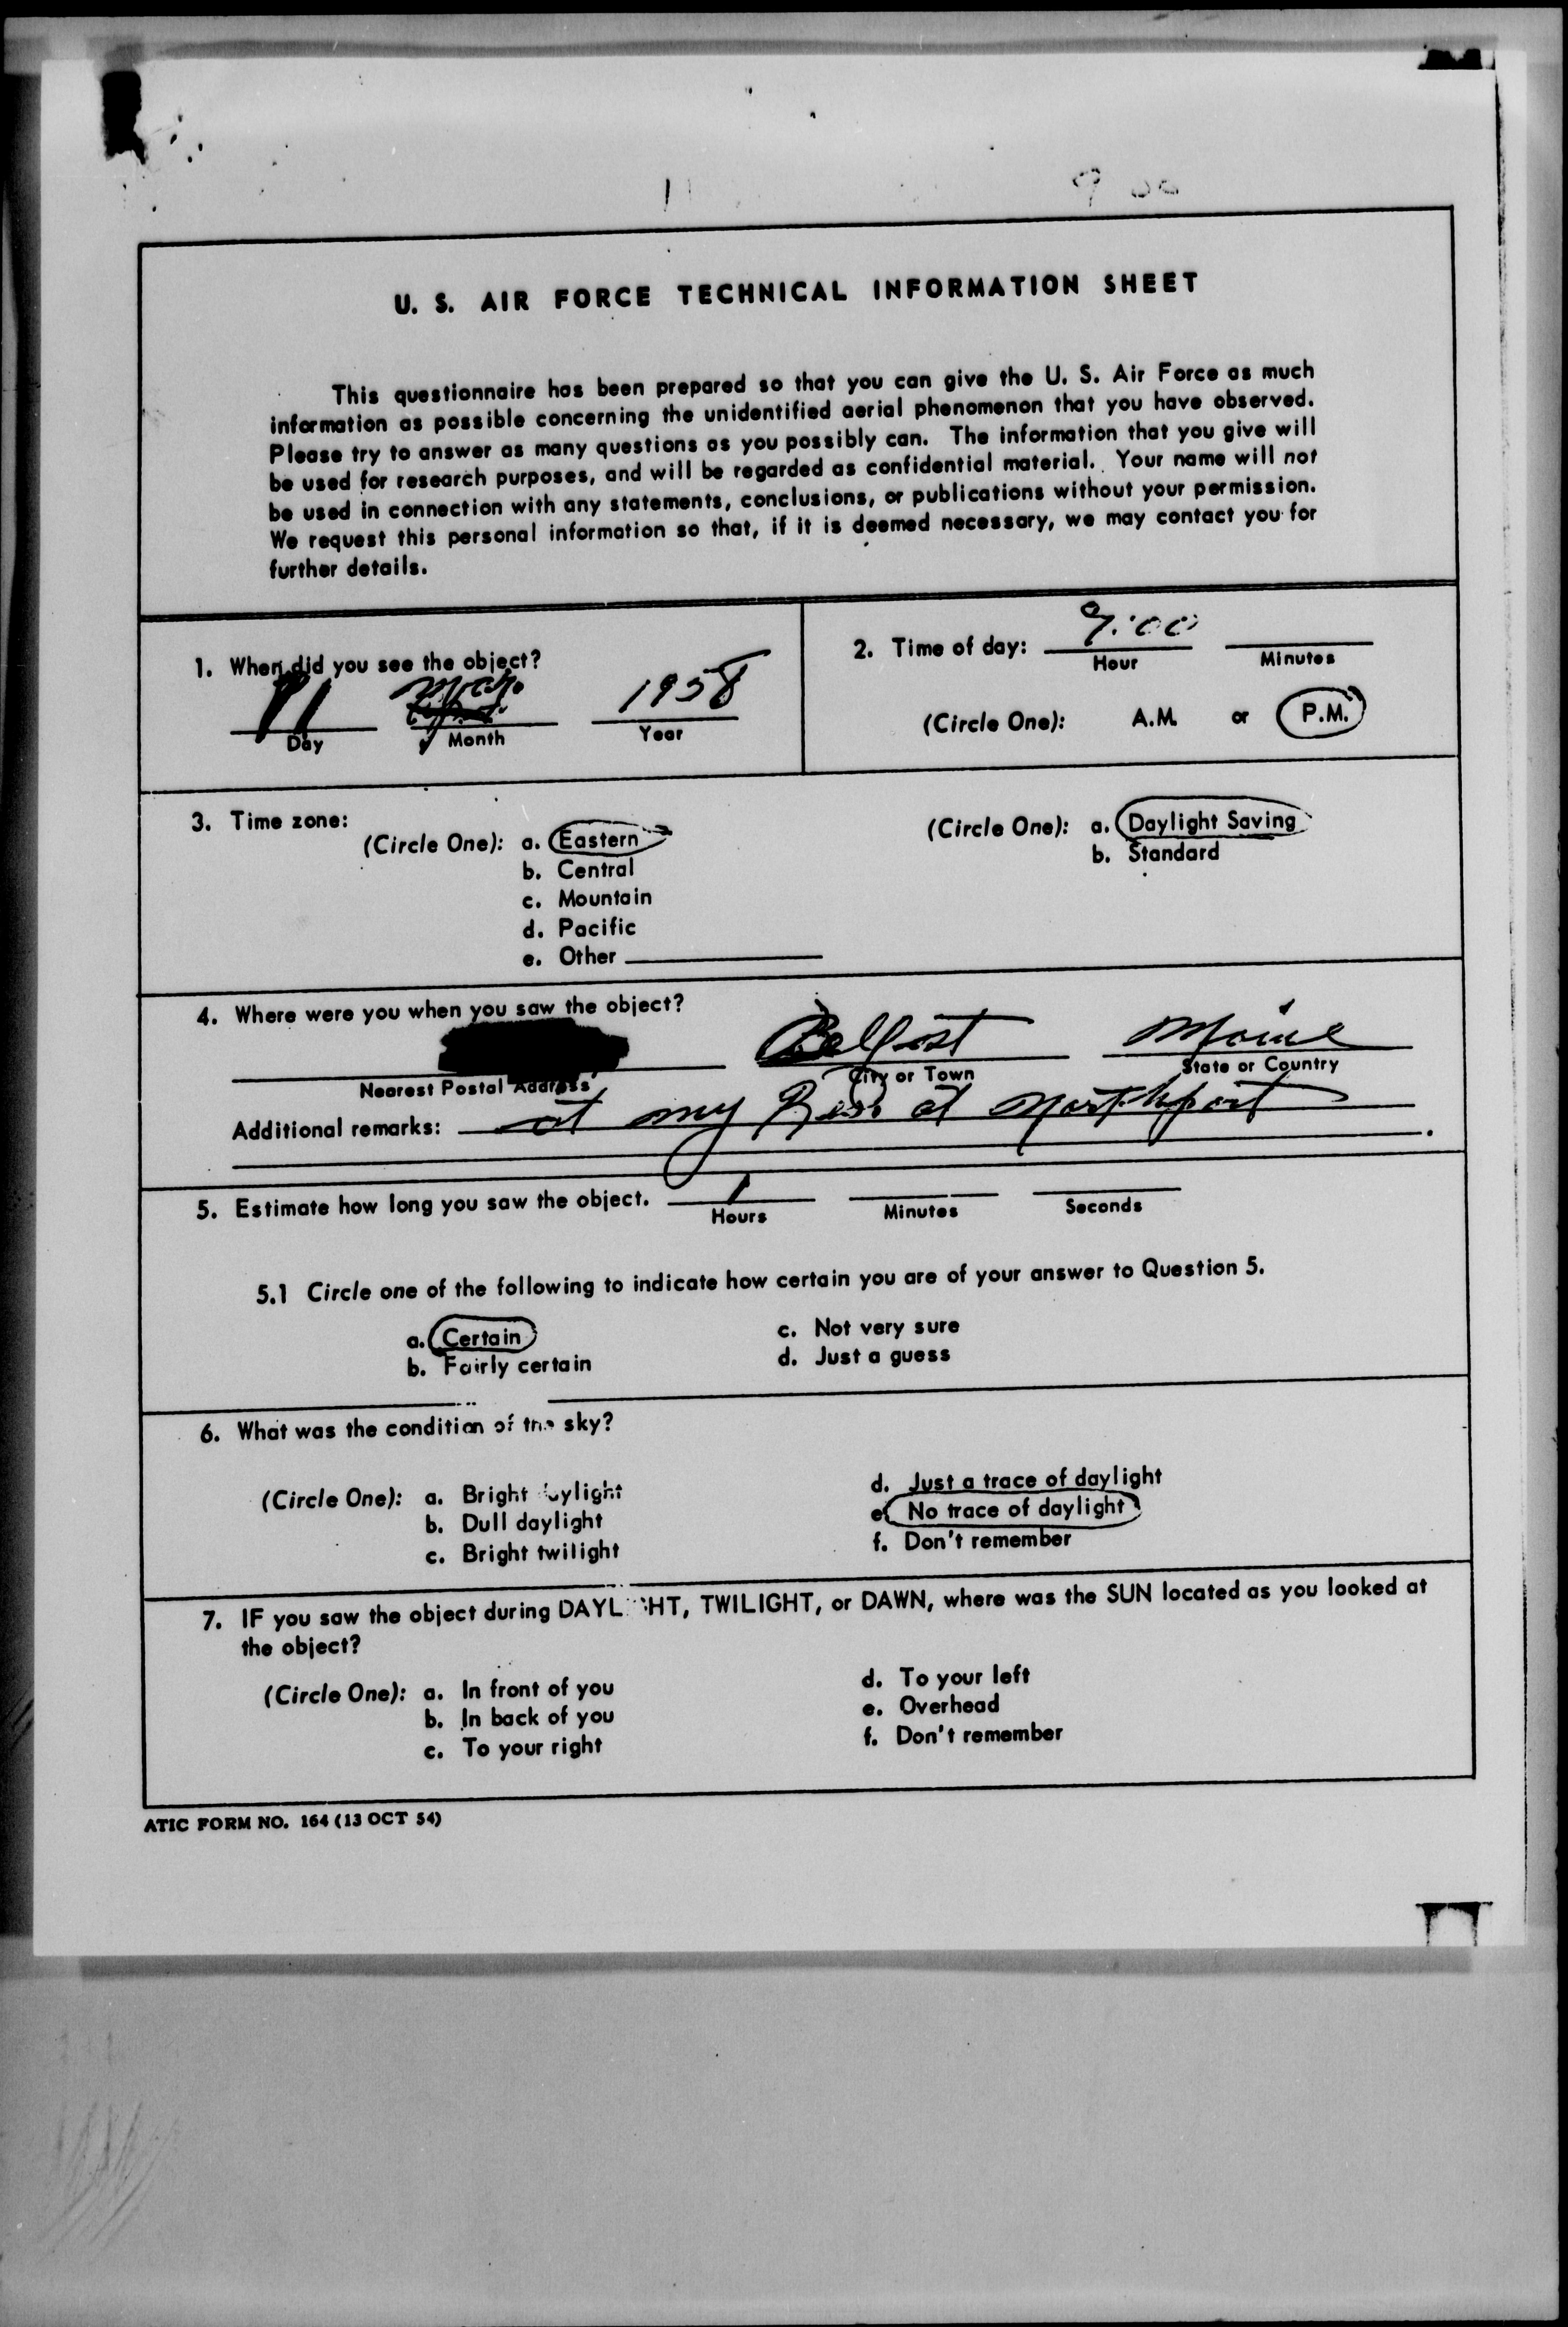 U. S. AIR FORCE TECHNICAL INFORMATION SHEET
This questionnaire has been prepared so that you can give the U. S. Air Force as much
information as possible concerning the unidentified aerial phenomenon that you have observed.
Please try to answer as many questions as you possibly can. The information that you give will
be used for research purposes, and will be regarded as confidential material. Your name will not
be used in connection with any statements, conclusions, or publications without your permission.
We request this personal information so that, if it is deemed necessary, we may contact you for
further details.
1. When did you see the object?
11 May 1958
Day Month Year
2. Time of day: 9:00
Hour Minutes
(Circle One): A.M. or P.M.
3. Time zone:
(Circle One): a. Eastern
b. Central
c. Mountain
d. Pacific
e. Other
(Circle One): a. Daylight Saving
b. Standard
4. Where were you when you saw the object?
Belfast Maine
Nearest Postal Address City or Town State or Country
Additional remarks: at my Res. at Northport
5. Estimate how long you saw the object. 1
Hours Minutes Seconds
5.1 Circle one of the following to indicate how certain you are of your answer to Question 5.
a. Certain
b. Fairly certain
c. Not very sure
d. Just a guess
6. What was the condition of the sky?
(Circle One): a. Bright daylight
b. Dull daylight
c. Bright twilight
d. Just a trace of daylight
e. No trace of daylight
f. Don't remember
7. IF you saw the object during DAYLIGHT, TWILIGHT, or DAWN, where was the SUN located as you looked at
the object?
(Circle One): a. In front of you
b. In back of you
c. To your right
d. To your left
e. Overhead
f. Don't remember
ATIC FORM NO. 164 (13 OCT 54)